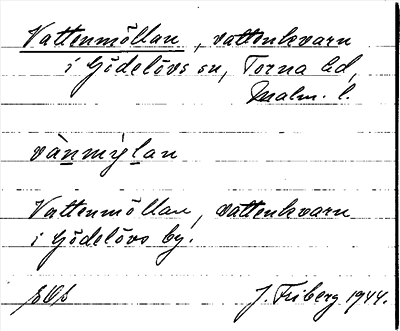 Vattenmöllan, vattenkvarn
i Gödelövs sn, Torna hd,
Malm. l.
vànmỳlan
Vattenmöllan, vattenkvarn
i Gödelövs by.
J. Friberg 1944.